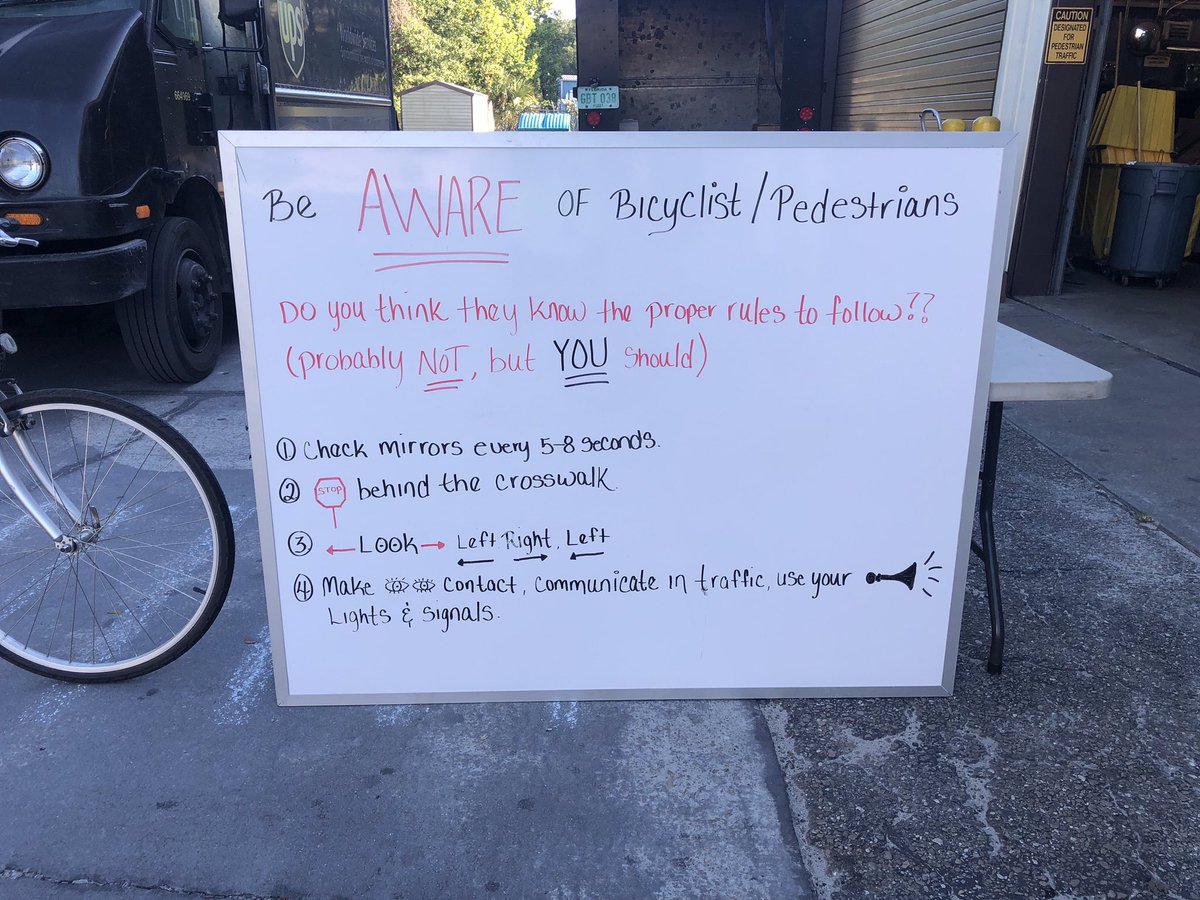 ups
664969
FLORIDA
GBT 038
CAUTION
DESIGNATED
FOR
PEDESTRIAN
TRAFFIC
Be AWARE OF Bicyclist/Pedestrians
Do you think they know the proper rules to follow??
(probably NOT, but YOU should)
① Check mirrors every 5-8 seconds.
② STOP behind the crosswalk.
③ ← Look → Left, Right, Left
④ Make contact, communicate in traffic, use your
Lights & signals.